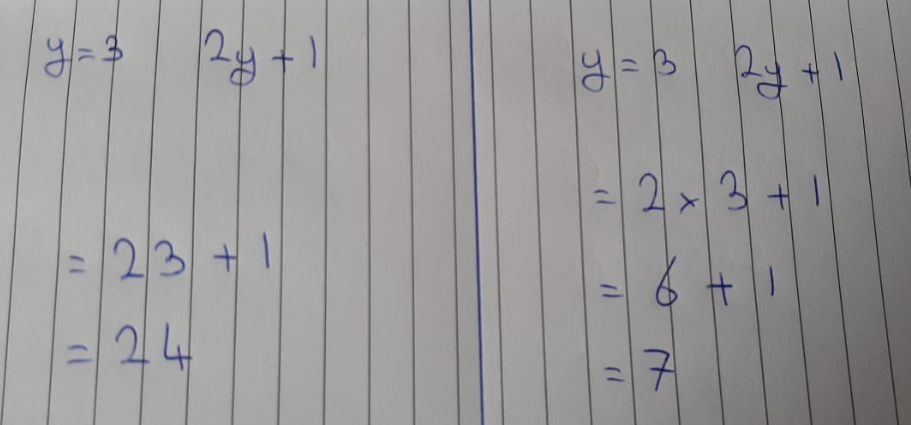 y = 3 2y + 1
= 23 + 1
= 24
y = 3 2y + 1
= 2 × 3 + 1
= 6 + 1
= 7